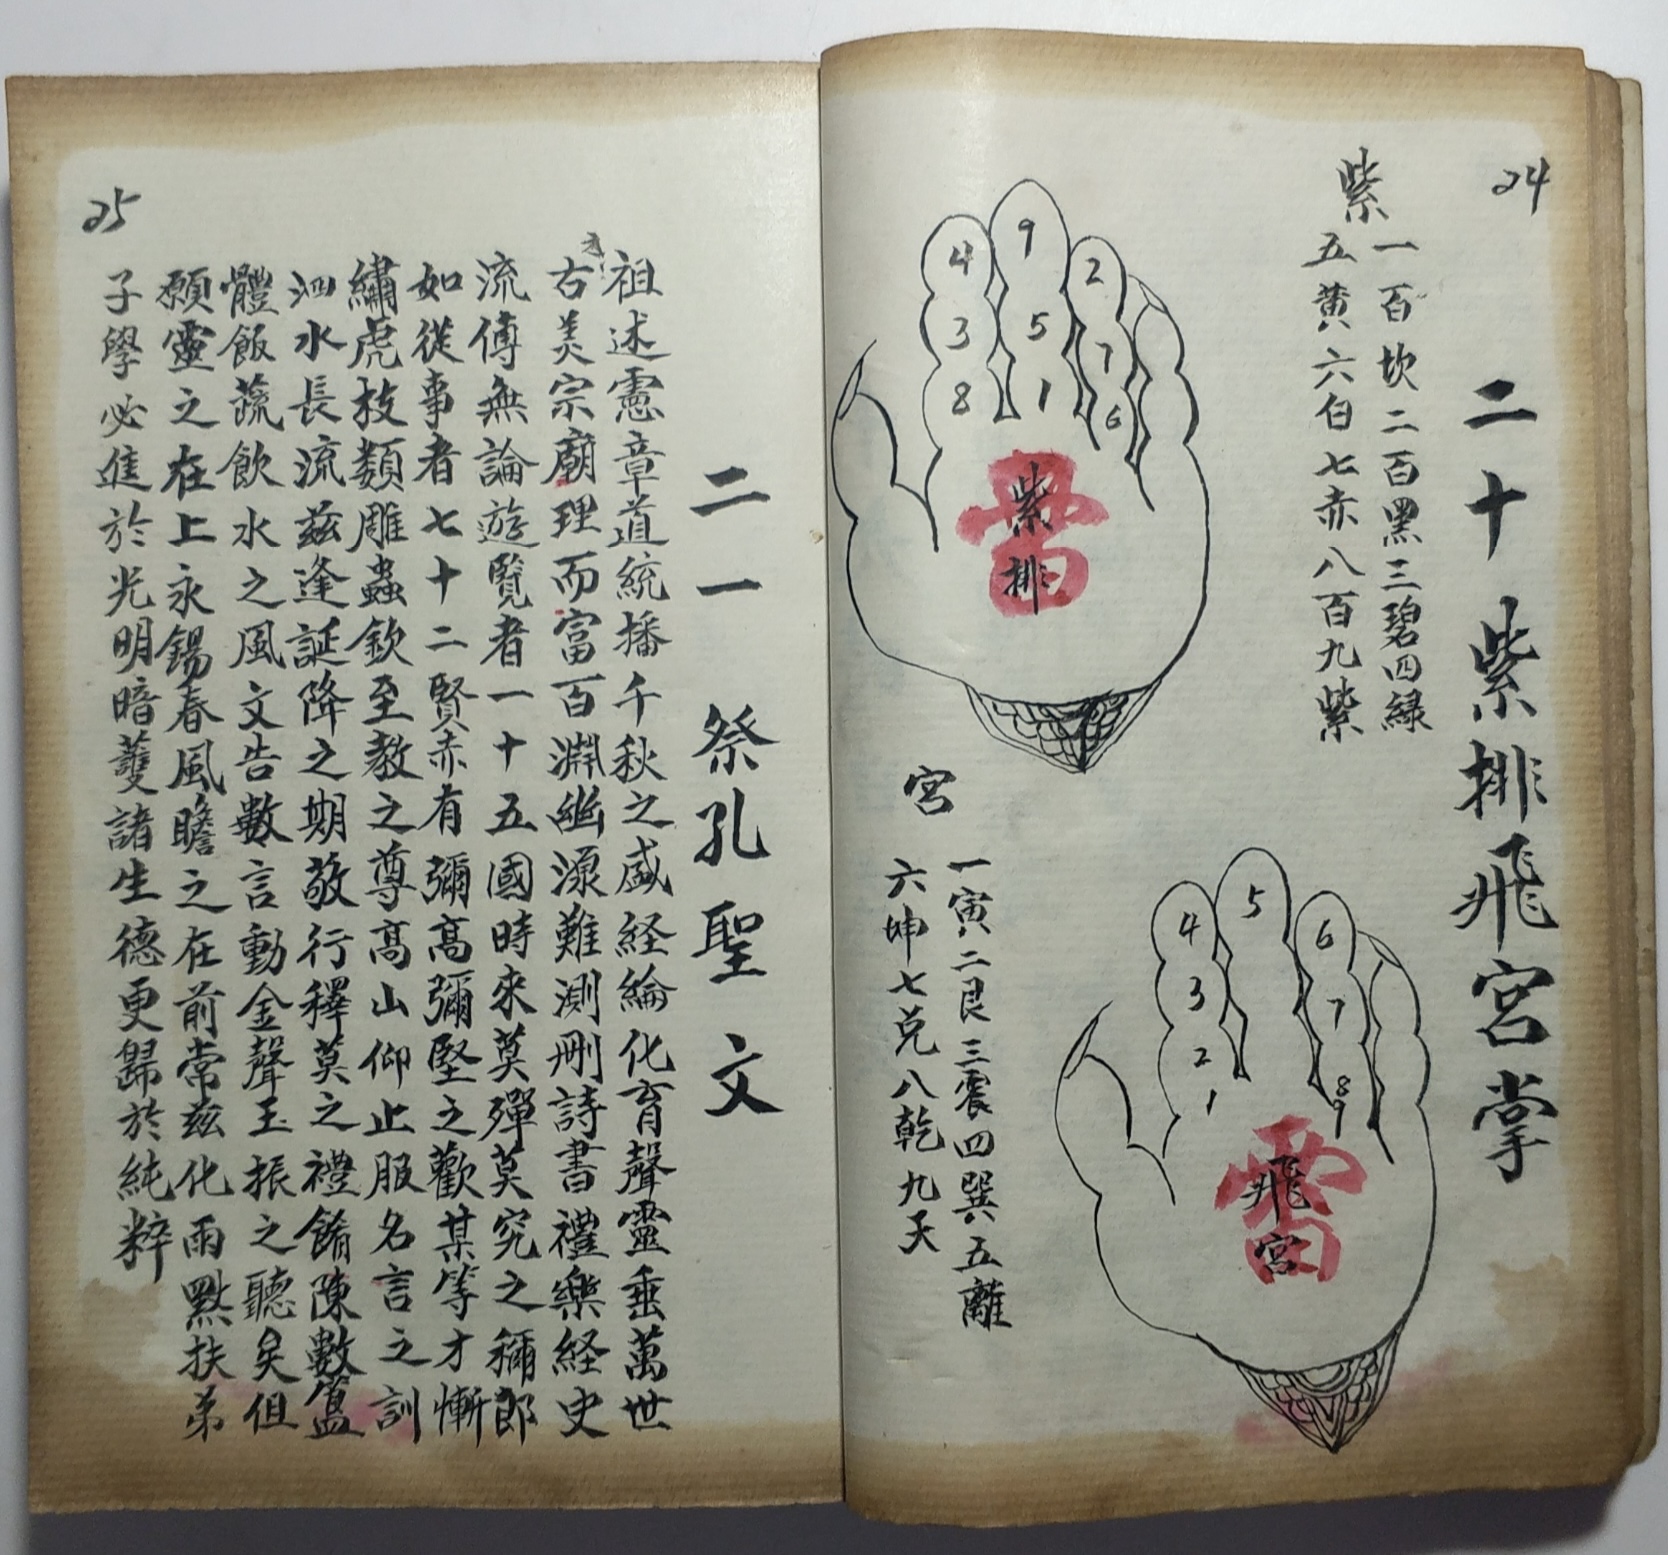 24
二十 紫排飛宮掌
紫
一百坎二百黑三碧四緑
五黄六白七赤八百九紫
4 9 2
3 5 7
8 1 6
紫排
宮
一寅二艮三震四巽五離
六坤七兑八乾九天
5
4 6
3 7
2 8
1 9
飛宮
25
二一 祭孔聖文
祖述憲章道統播千秋之盛経綸化育聲靈垂萬世
右美宗廟理而富百淵幽源難測刪詩書禮樂経史
流傳無論遊覧者一十五國時來莫殫莫究之稱郎
如從事者七十二賢赤有彌高彌堅之歡某等才慚
繡虎枝類雕蟲欽至教之尊高山仰止服名言之訓
泗水長流兹逢誕降之期敬行釋莫之禮餚陳數簋
體飯蔬飲水之風文告數言動金聲玉振之聽矣伹
願靈之在上永錫春風瞻之在前常兹化雨點扶弟
子學必進於光明暗蔓諸生德更歸於純粹